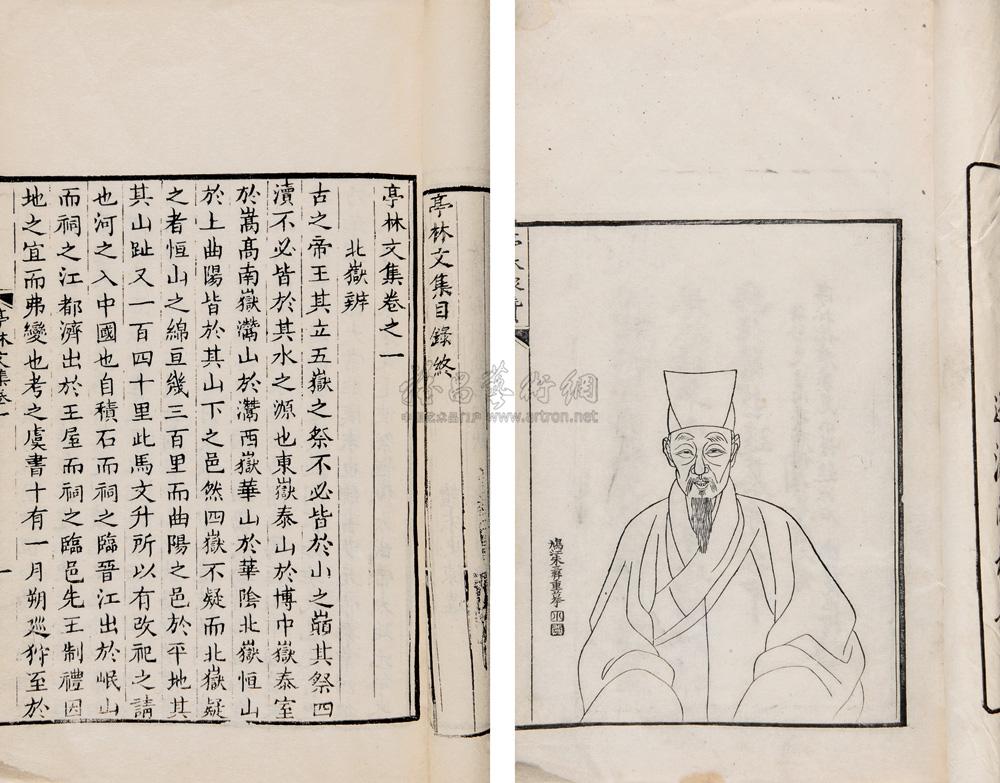 亭林文集目錄終
亭林文集卷之一
北嶽辨
古之帝王其立五嶽之祭不必皆於山之巔其祭四
瀆不必皆於其水之源也東嶽泰山於博中嶽泰室
於嵩高南嶽灊山於灊西嶽華山於華陰北嶽恒山
於上曲陽皆於其山下之邑然四嶽不疑而北嶽疑
之者恒山之綿亘幾三百里而曲陽之邑於平地其
其山趾又一百四十里此馬文升所以有改祀之請
也河之入中國也自積石而祠之臨晉江出於岷山
而祠之江都濟出於王屋而祠之臨邑先王制禮因
地之宜而弗變也考之虞書十有一月朔廵狩至於
亭林文集卷一
一
鳩江朱家重摹
藝術網
www.artron.net